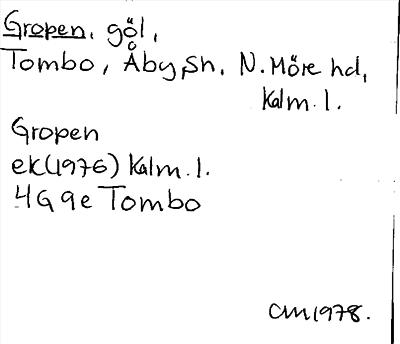 Gropen, göl,
Tombo, Åby sn. N. Möre hd,
Kalm. l.
Gropen
ek(1976) Kalm. l.
4G 9e Tombo
CM 1978.